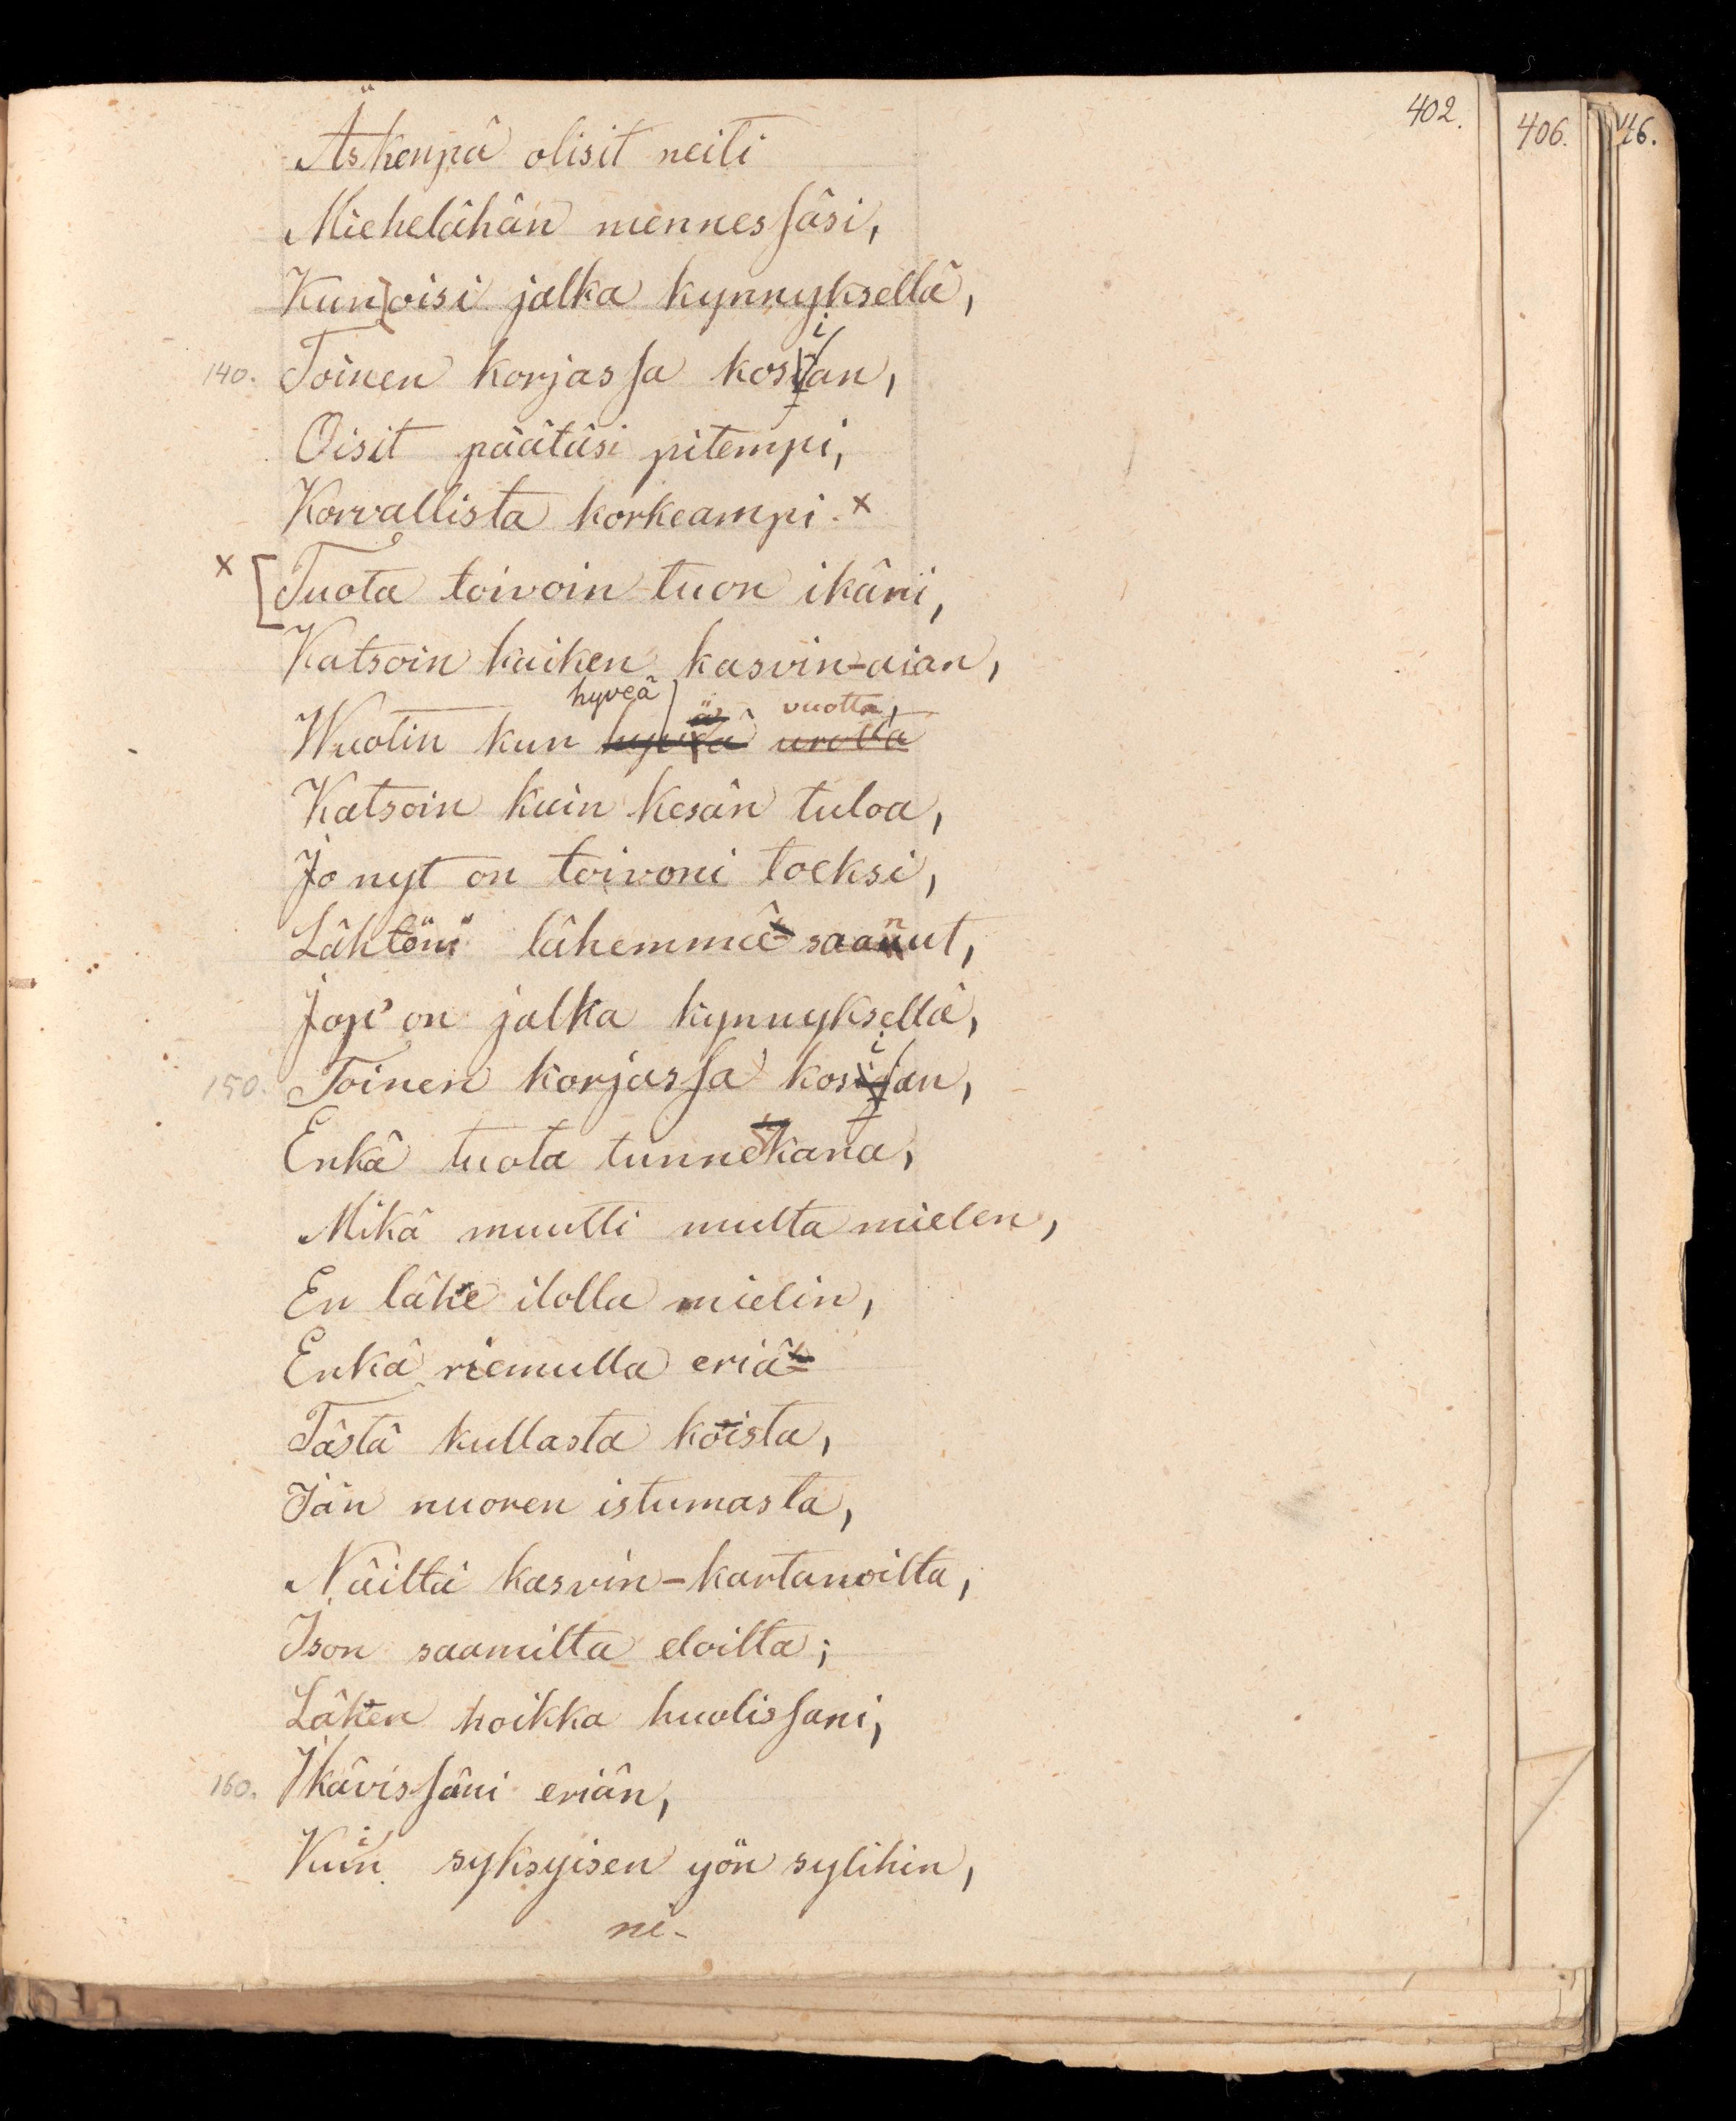 402.
406.
46.
Äskenpä olisit neiti
Miehelähän mennessäsi,
Kun]oisi jalka kynnyksellä,
140. Toinen korjassa kosian,
Oisit päätäsi pitempi,
Korvallista korkeampi. x
x [Tuota toivoin tuon ikäni,
Katsoin kaiken kasvin-aian,
hyveä vuotta,
Wuotin kun
Katsoin kuin kesän tuloa,
Jo nyt on toivoni toeksi,
Lähtöni lähemmä saanut,
Jop' on jalka kynnyksellä,
150. Toinen korjassa kosian,
Enkä tuota tunnekana,
Mikä muutti multa mielen,
En lähe ilolla mielin,
Enkä riemulla eriä
Tästä kullasta koista,
Iän nuoren istumasta,
Näiltä kasvin-kartanoilta,
Ison saamilta eloilta;
Lähen hoikka huolissani,
160. Ikävissäni eriän,
Kuin syksyisen yön sylihin,
ni-